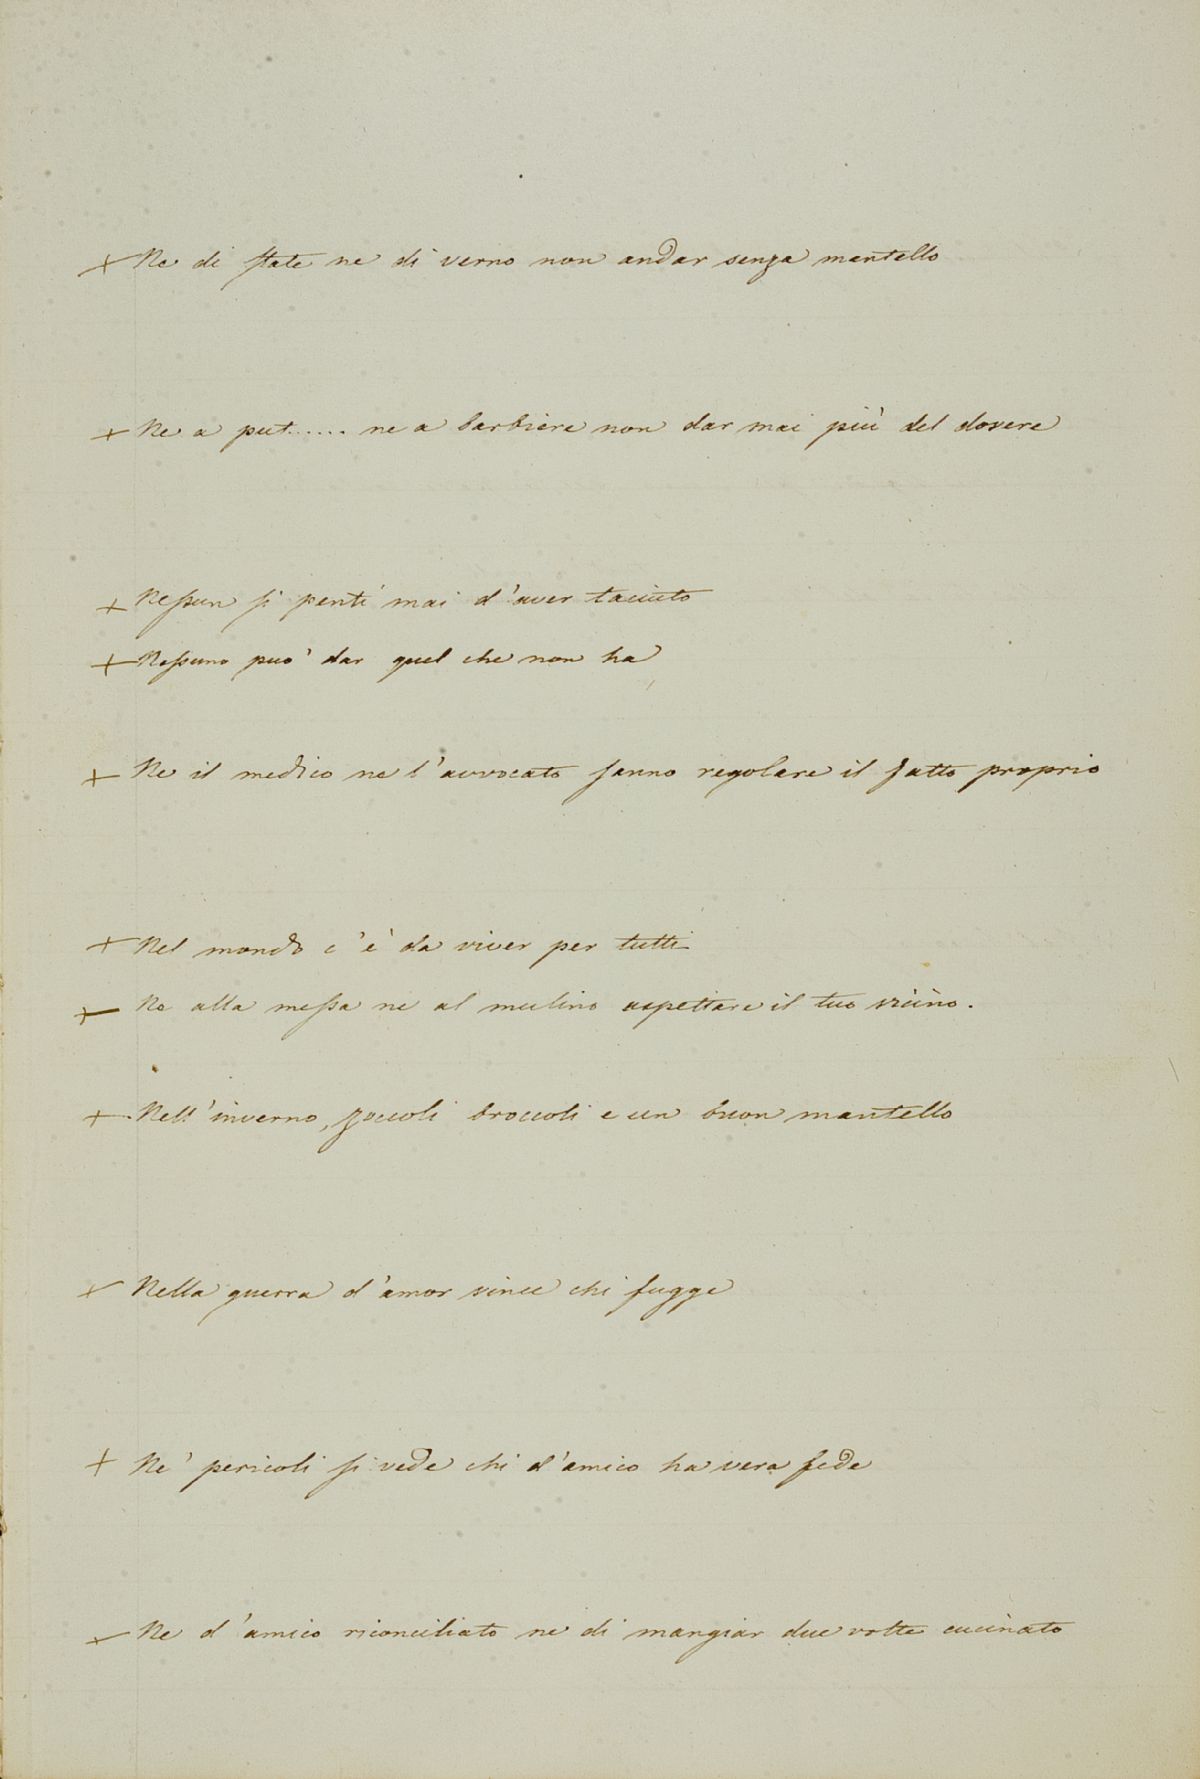 + Ne di state ne di verno non andar senza mantello
+ Ne a put..... ne a barbiere non dar mai più del dovere
+ Nessun si penti mai d'aver taciuto
+ Nessuno puo' dar quel che non ha
+ Ne il medico ne l'avvocato sanno regolare il fatto proprio
+ Nel mondo c'è da viver per tutti
+ Ne alla messa ne al mulino aspettare il tuo vicino.
+ Nell'inverno, zoccoli broccoli e un buon mantello
+ Nella guerra d'amor vince chi fugge
+ Ne' pericoli si vede chi d'amico ha vera fede
+ Ne d'amico riconciliato ne di mangiar due volte cucinato